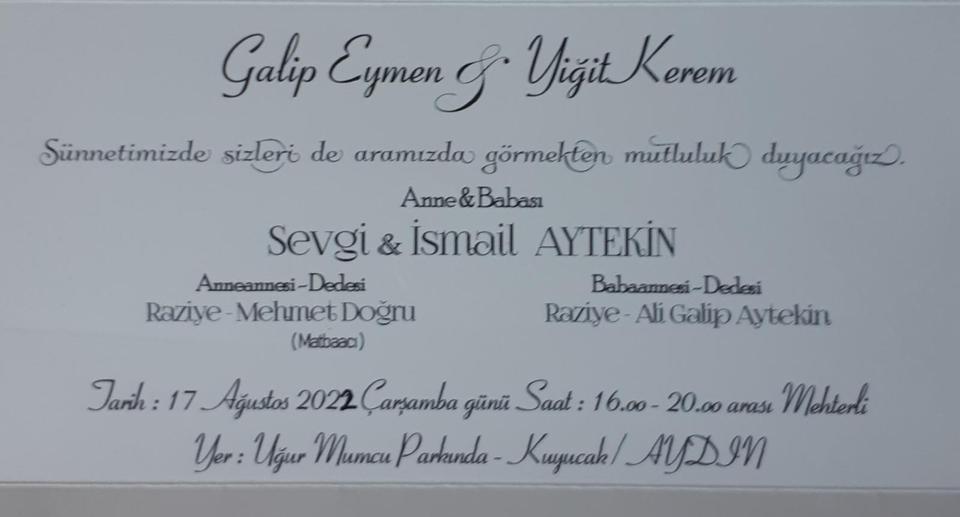 Galip Eymen & Yiğit Kerem
Sünnetimizde sizleri de aramızda görmekten mutluluk duyacağız.
Anne&Babası
Sevgi & İsmail AYTEKİN
Anneannesi-Dedesi
Raziye - Mehmet Doğru
(Matbaacı)
Babaannesi-Dedesi
Raziye - Ali Galip Aytekin
Tarih : 17 Ağustos 2022 Çarşamba günü Saat : 16.00 - 20.00 arası Mehterli
Yer : Uğur Mumcu Parkında - Kuyucak/ AYDIN